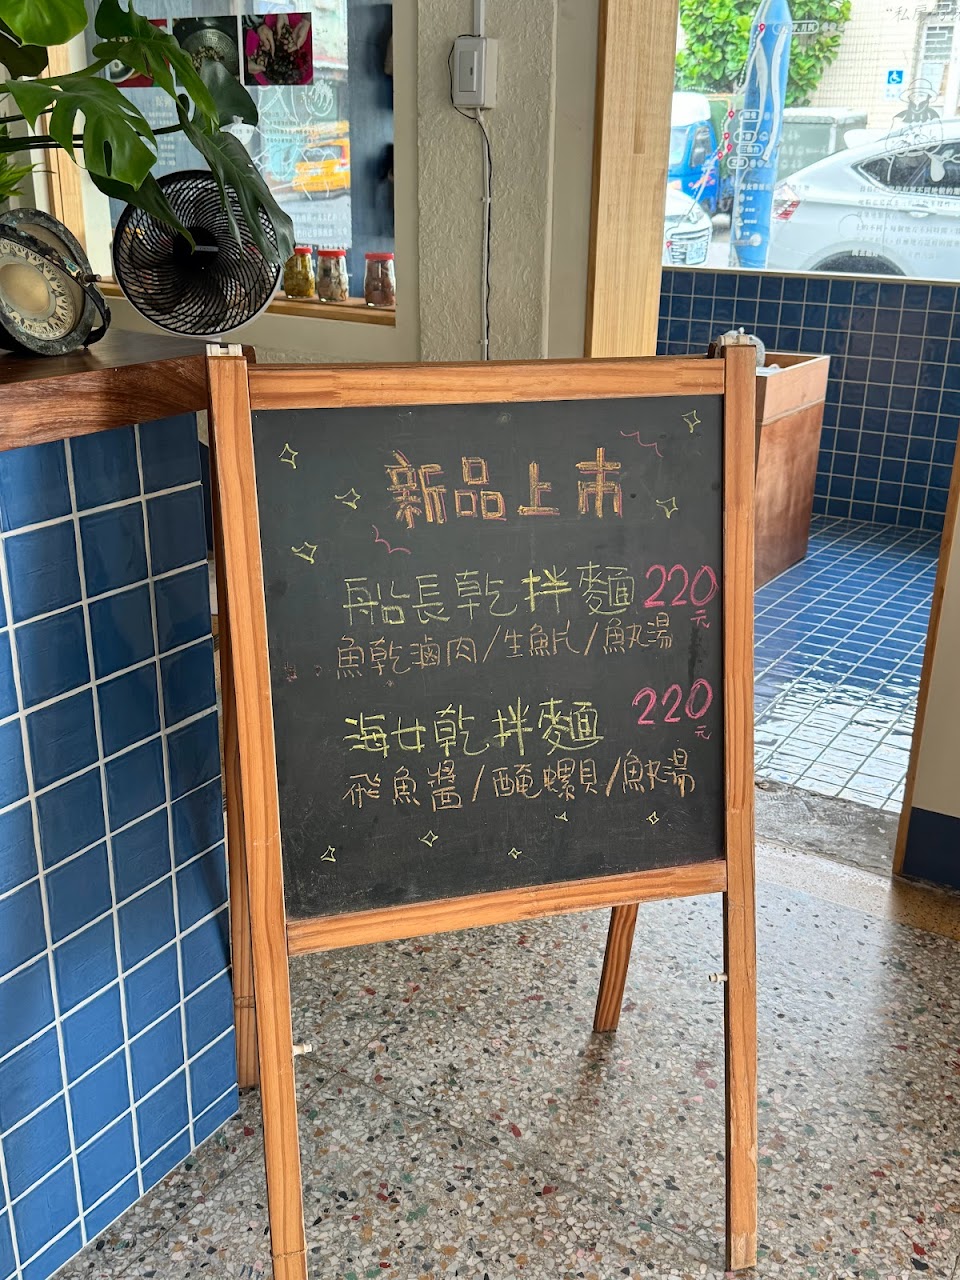 新品上市
船長乾拌麵 220元
魚乾滷肉/生魚片/魚丸湯
海女乾拌麵 220元
飛魚醬/醃螺貝/魚丸湯